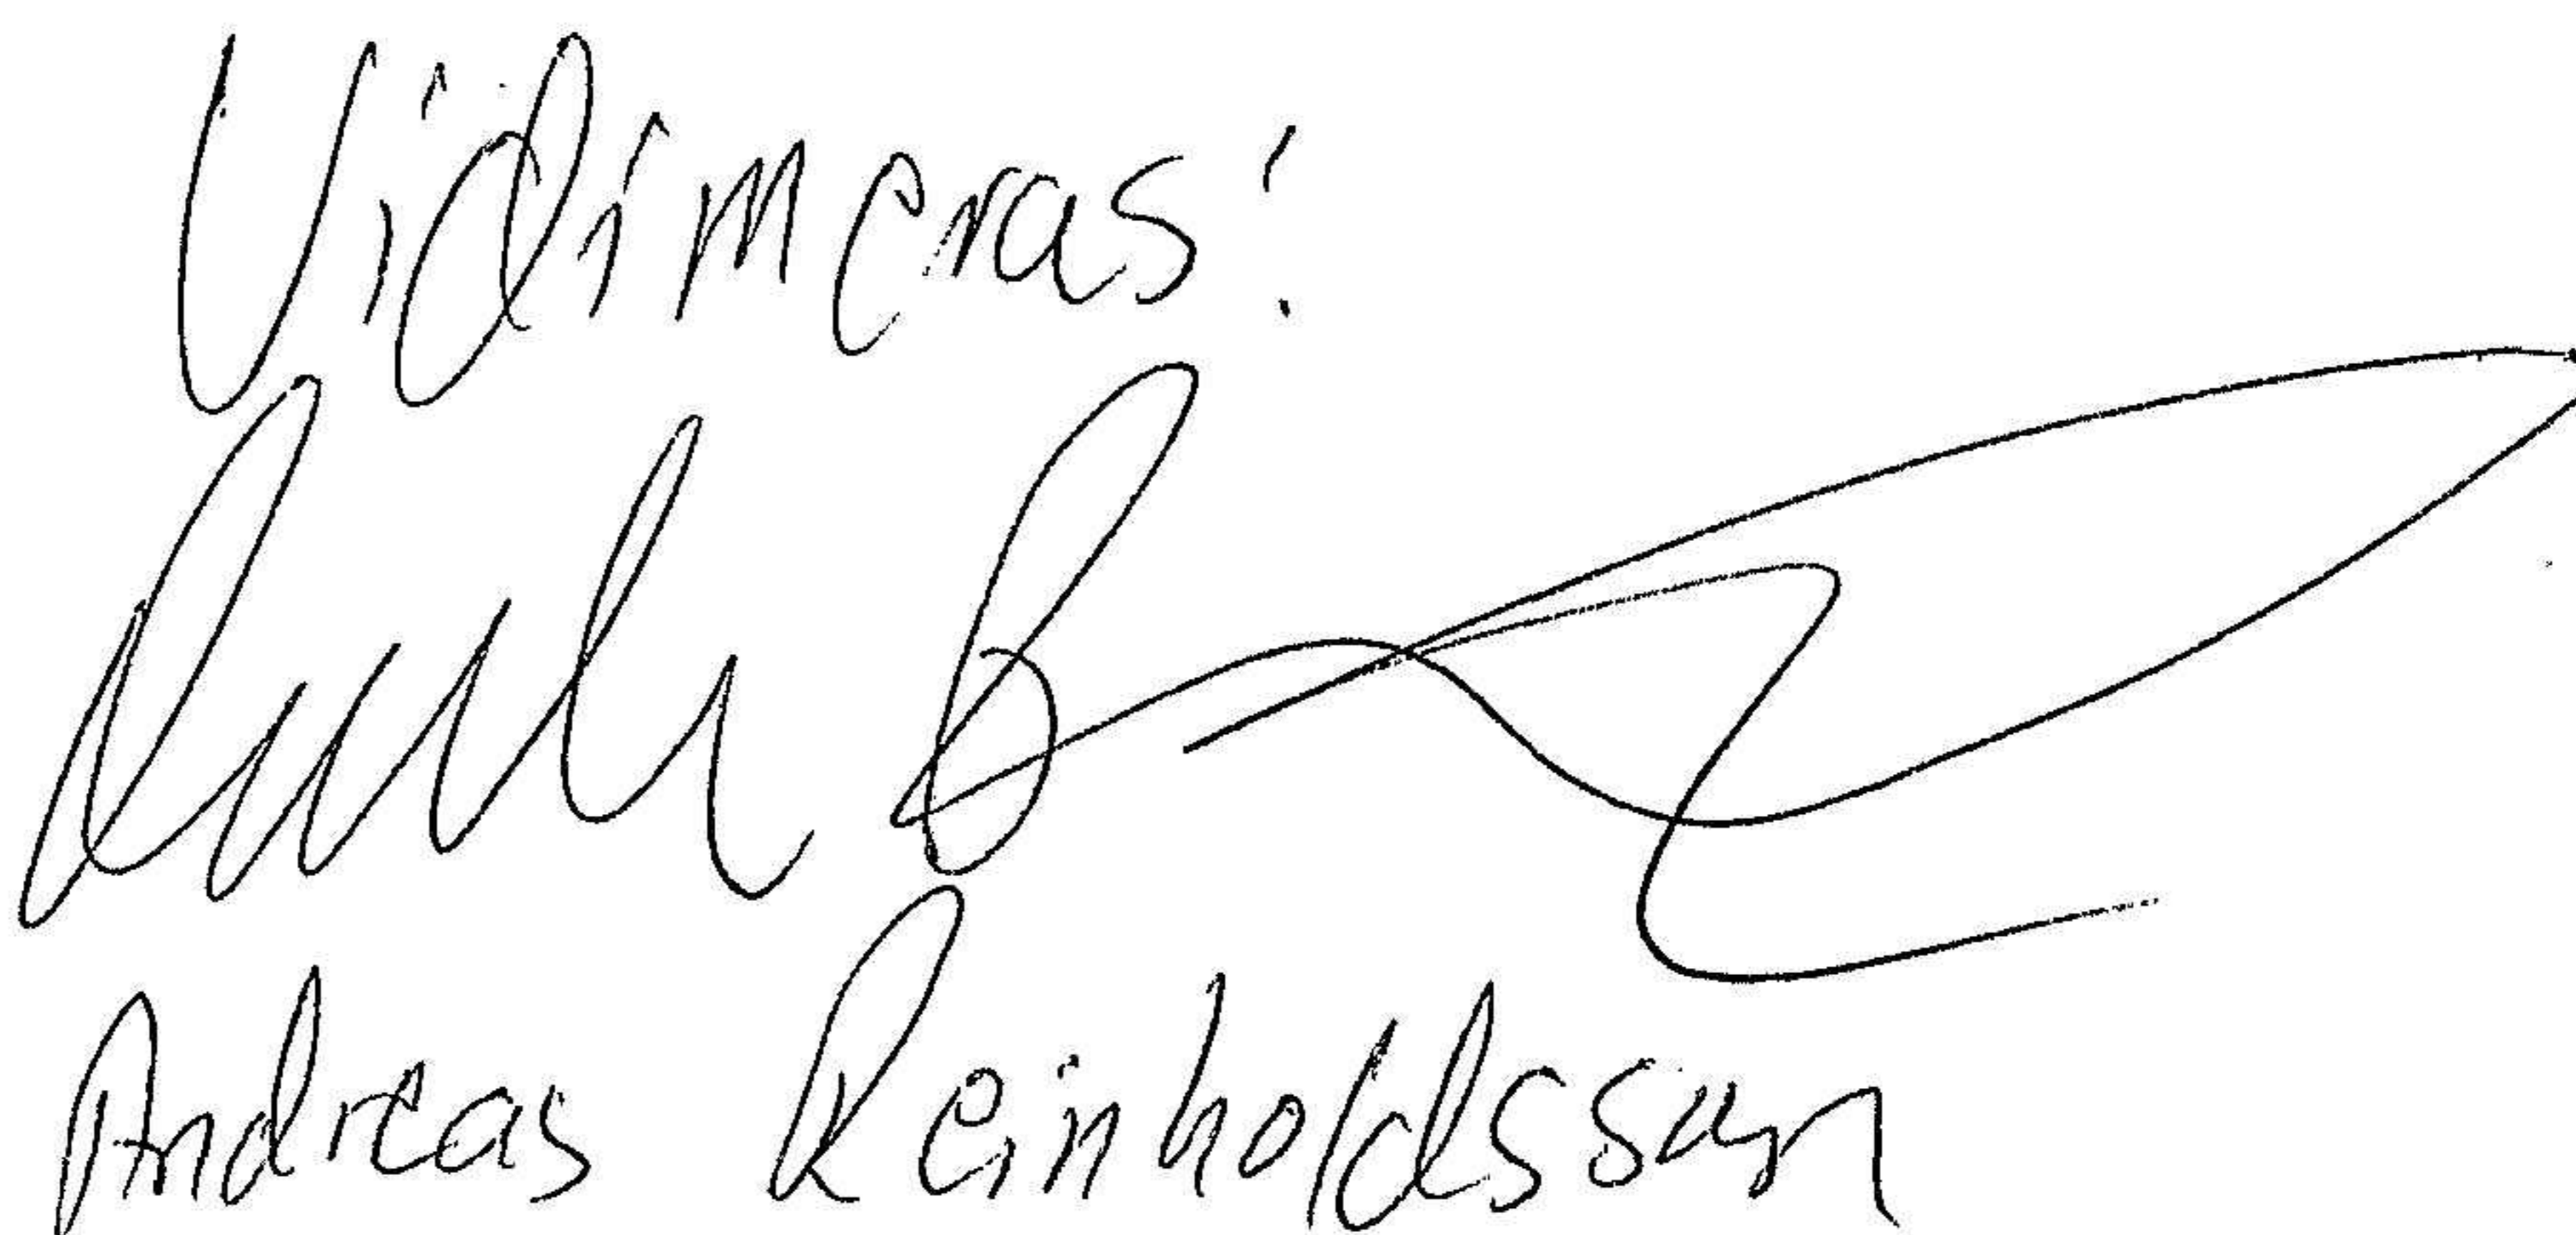 Vidimeras:
Andreas Reinholdsson